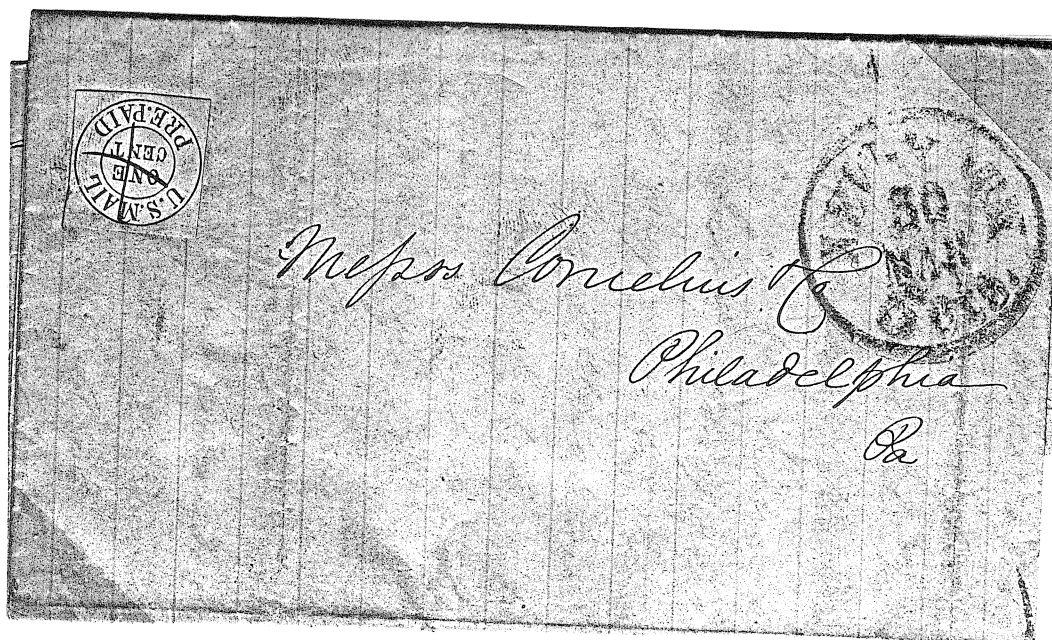 U.S.MAIL
PRE.PAID
ONE
CENT
NEW-YORK
30
MAY
5 cts.
Messrs Cornelius & Co
Philadelphia
Pa